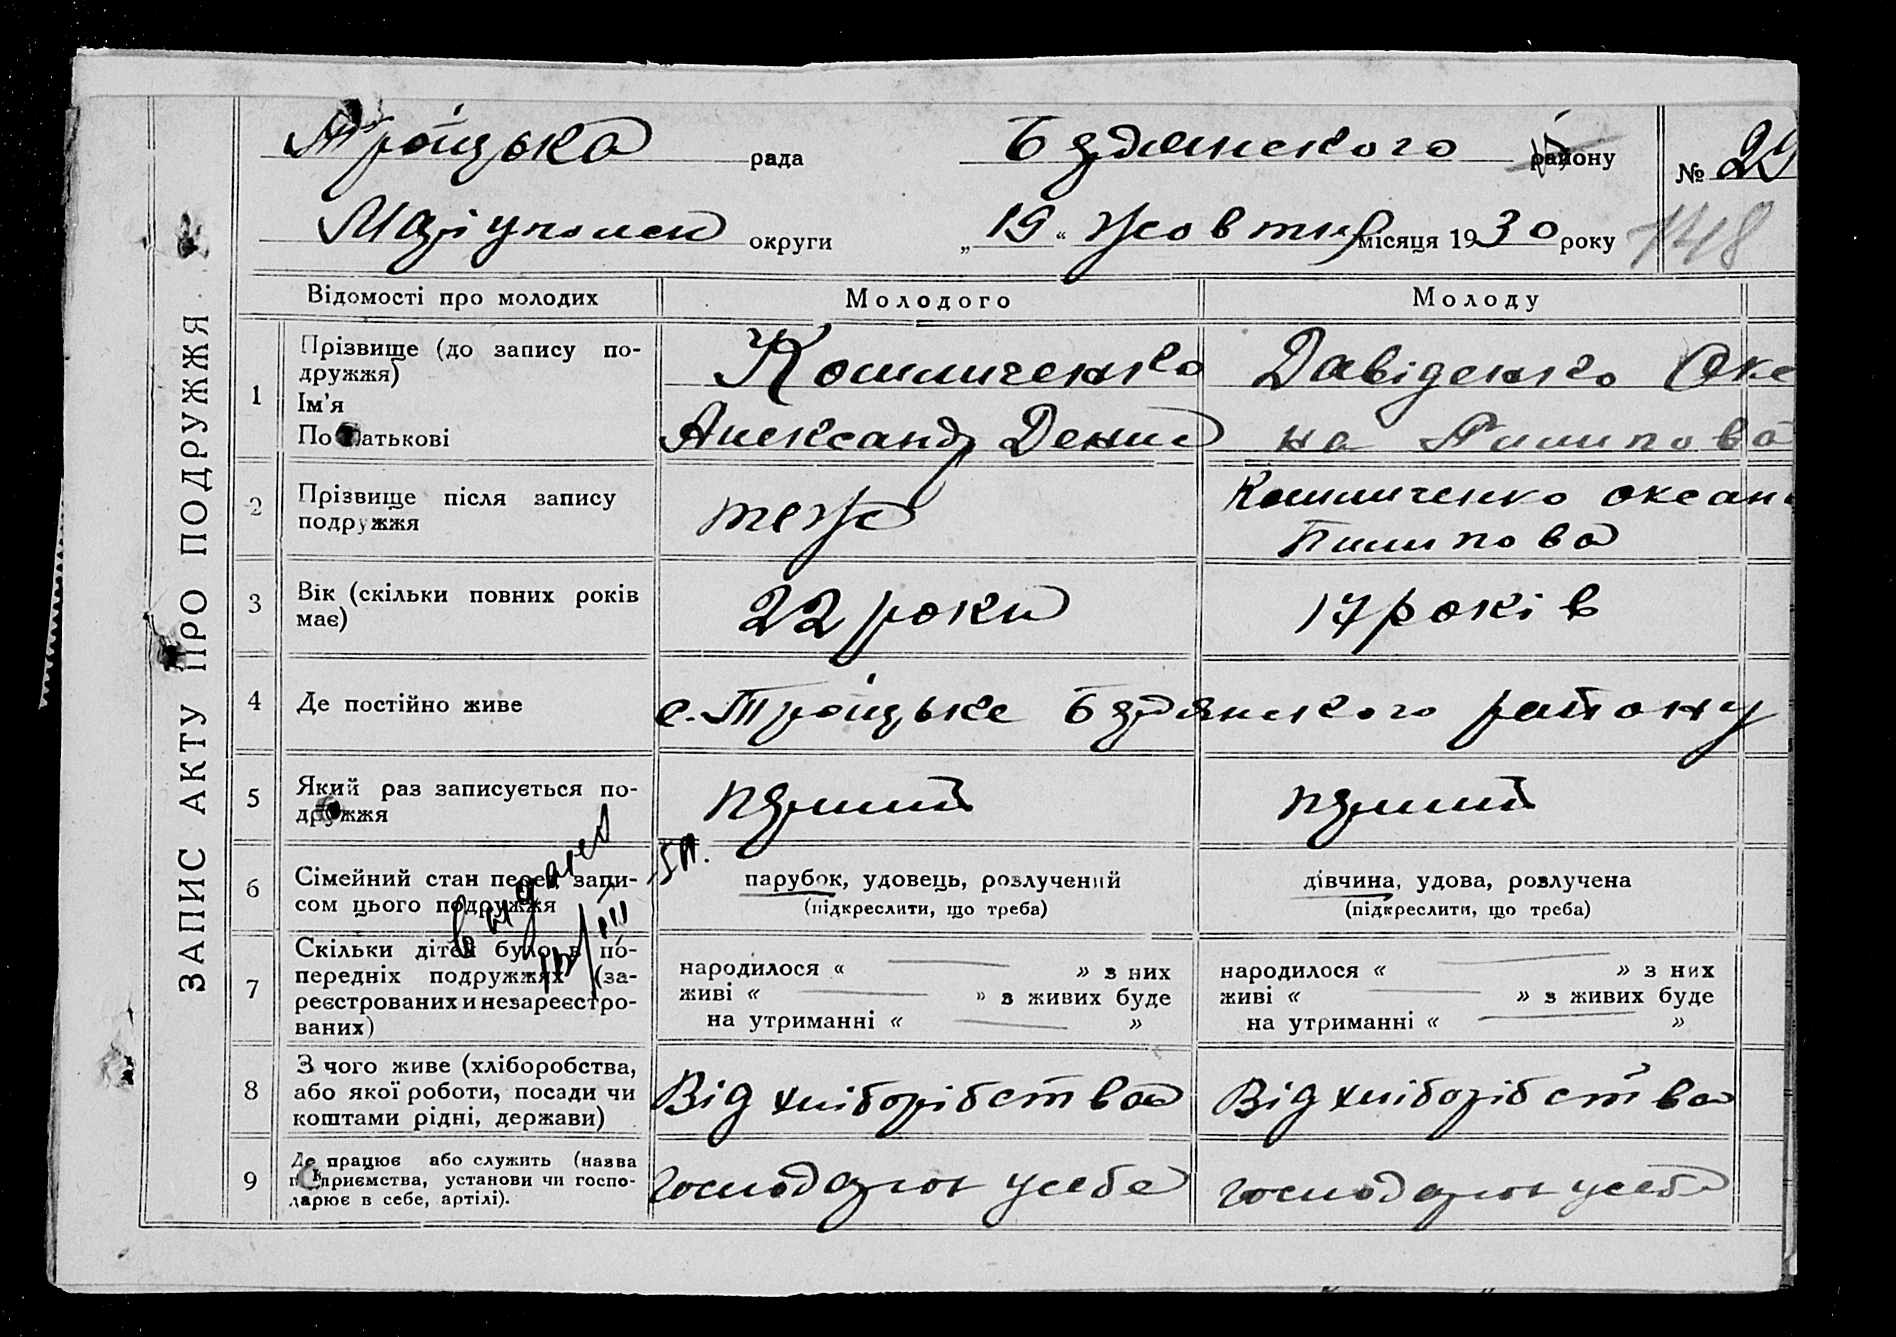 ЗАПИС АКТУ ПРО ПОДРУЖЖЯ
Троїцька рада Бердянського району № 29
Маріупольск округи „19“ жовтня місяця 1930 року 148
Відомості про молодих Молодого Молоду
1 Прізвище (до запису по-
дружжя)
Ім'я
По батькові
Кошиченко
Александр Денис
Давіденко Окс
на Пилипова
2 Прізвище після запису
подружжя
теж
Кошиченко Оксан
Пилипова
3 Вік (скільки повних років
має)
22 роки
17 років
4 Де постійно живе
с. Троїцьке Бердянского району
5 Який раз записується по-
дружжя
перший
перший
6 Сімейний стан перед запи-
сом цього подружжя
парубок, удовець, розлучений
(підкреслити, що треба)
дівчина, удова, розлучена
(підкреслити, що треба)
7 Скільки дітей було в по-
передніх подружжях (за-
реєстрованих и незареєстро-
ваних)
народилося « — » з них
живі « — » з живих буде
на утриманні « — »
народилося « — » з них
живі « — » з живих буде
на утриманні « — »
8 З чого живе (хліборобства,
або якої роботи, посади чи
коштами рідні, держави)
Від хліборібства
Від хліборібства
9 Де працює або служить (назва
підприємства, установи чи госпо-
дарює в себе, артілі).
господарює усебе
господарює усебе